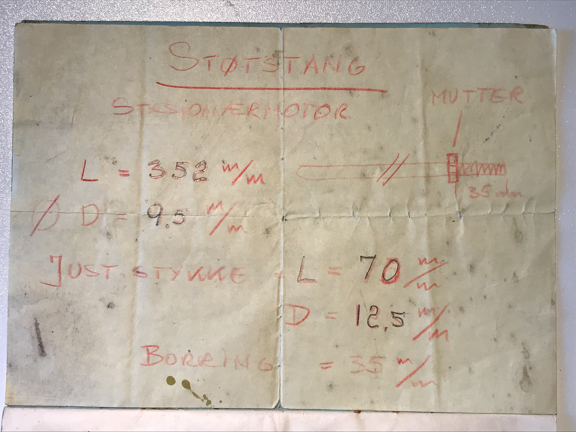 STØTSTANG
STASJONÆRMOTOR
MUTTER
L = 352 m/m
35 m/m
Ø D = 9,5 m/m
JUST STYKKE - L = 70 m/m
D = 12,5 m/m
BORRING = 35 m/m